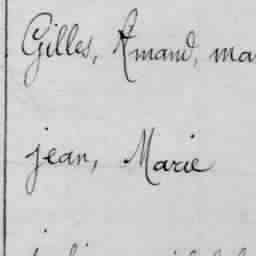 Gilles, Amand, ma
jean, Marie